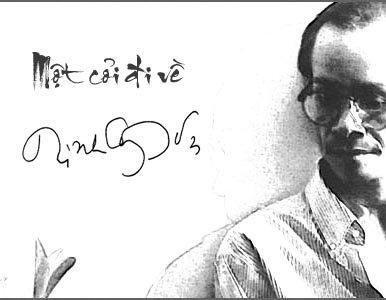 Một cõi đi về
Trịnh Công Sơn